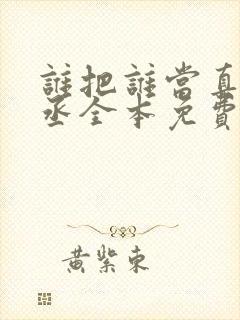 誰把誰當真
丞全本免費
黃紫東